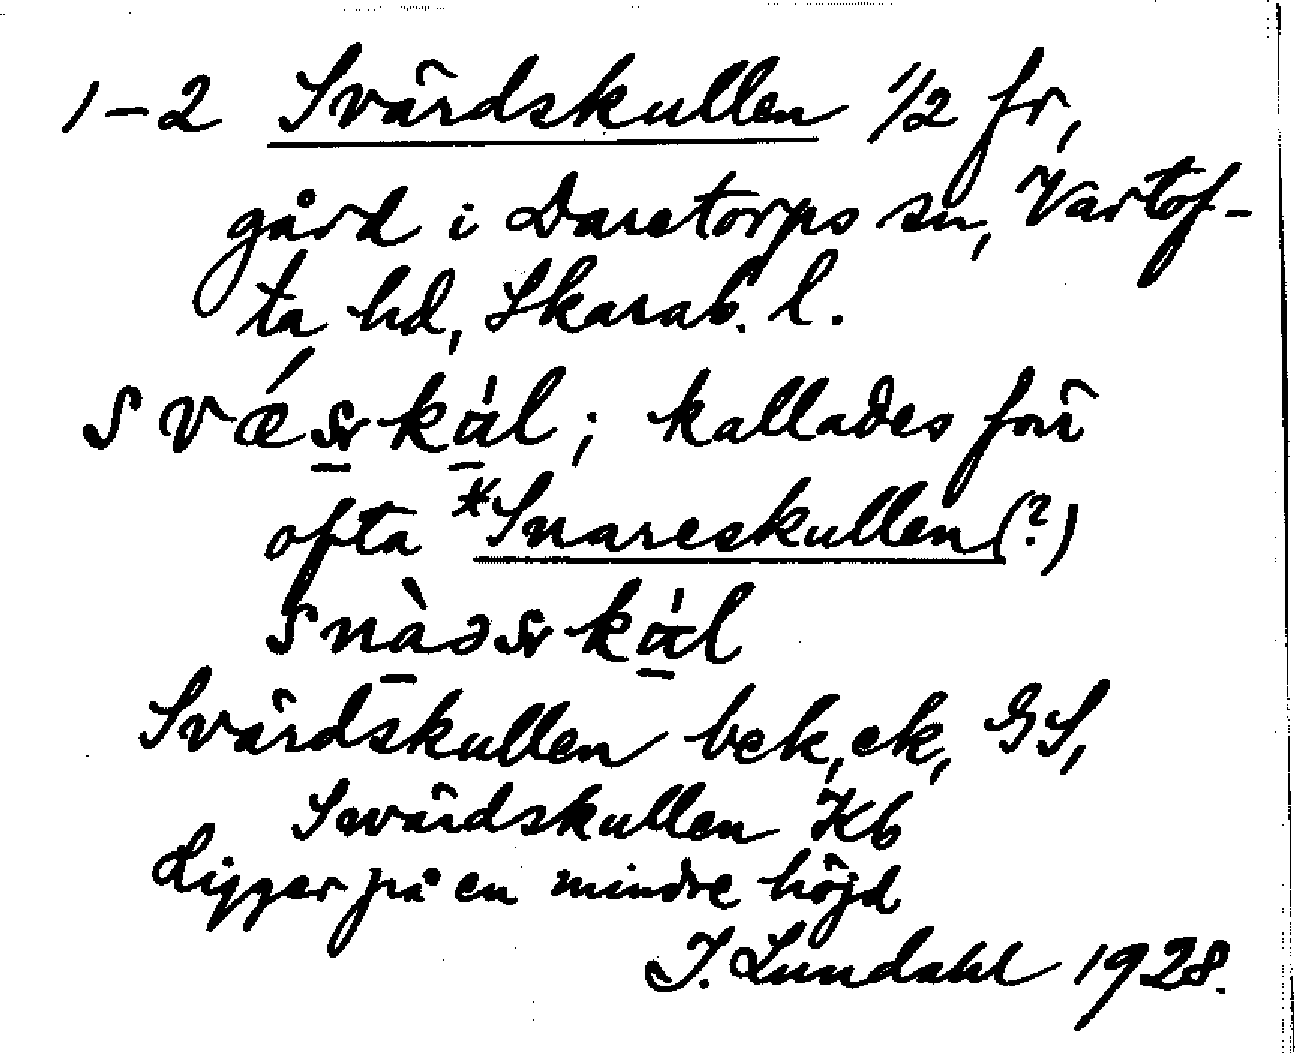 1-2 Svärdskullen 1/2 fr,
gård i Daretorps sn, Vartof-
ta hd, Skarab. l.
kallades förr
ofta *Snareskullen (?)
Svärdskullen bek, ek, GS,
Swärdskullen Kb
Ligger på en mindre höjd
I. Lundahl 1928.